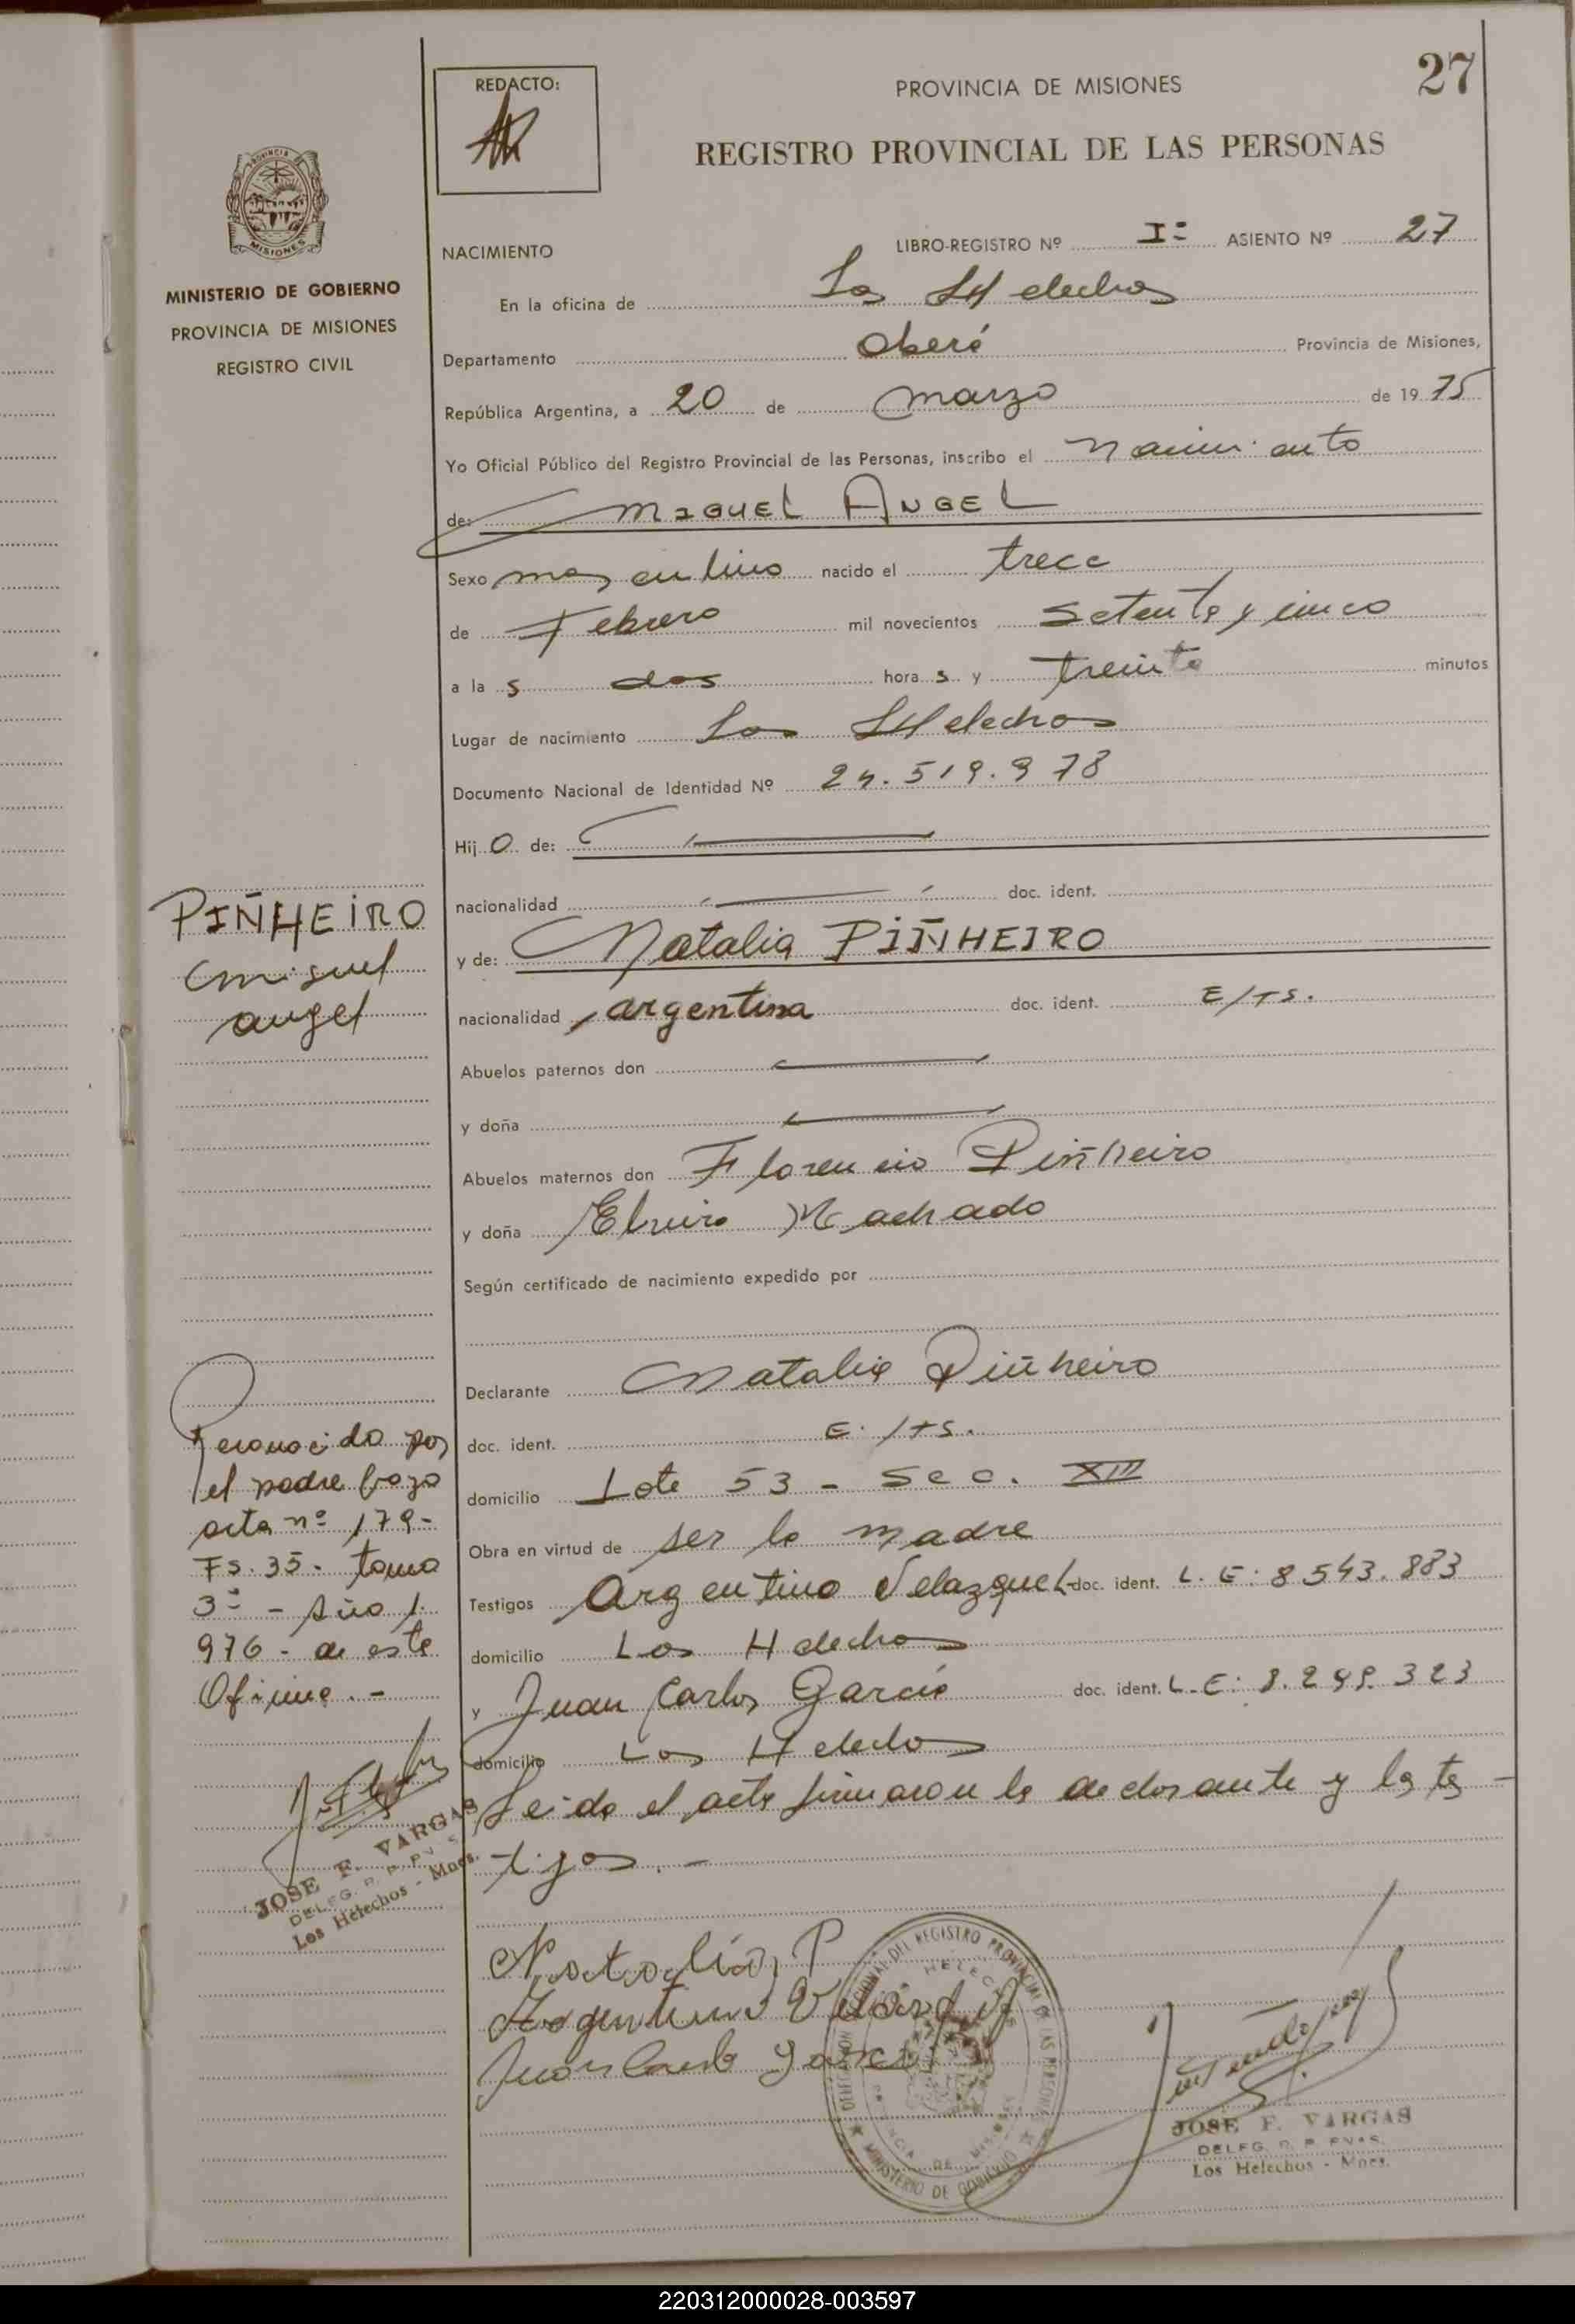 27
REDACTO:
PROVINCIA DE MISIONES
REGISTRO PROVINCIAL DE LAS PERSONAS
PROVINCIA
MISIONES
MINISTERIO DE GOBIERNO
PROVINCIA DE MISIONES
REGISTRO CIVIL
NACIMIENTO LIBRO-REGISTRO Nº I= ASIENTO Nº 27
En la oficina de Los Helechos
Departamento Oberá Provincia de Misiones,
República Argentina, a 20 de marzo de 1975
Yo Oficial Público del Registro Provincial de las Personas, inscribo el Nacimiento
de: MIGUEL ANGEL
Sexo masculino nacido el trece
de Febrero mil novecientos setenta y cinco
a la s dos hora s y treinta minutos
Lugar de nacimiento Los Helechos
Documento Nacional de Identidad Nº 24.519.978
Hij o de:
nacionalidad doc. ident.
y de: Natalia PIÑHEIRO
nacionalidad argentina doc. ident. E/TS.
Abuelos paternos don
y doña
Abuelos maternos don Florencio Piñheiro
y doña Elvira Machado
Según certificado de nacimiento expedido por
Declarante Natalia Piñheiro
doc. ident. E./TS.
domicilio Lote 53 - Sec. XIII
Obra en virtud de ser la madre
Testigos Argentino Velazquez doc. ident. L.E: 8543.883
domicilio Los Helechos
y Juan Carlos García doc. ident. L.E: 8.298.323
domicilio Los Helechos
Leida el acta firmaron la declarante y los tes-
tigos.-
PIÑHEIRO
Miguel
Angel
Reconocido por
el padre bajo
acta nº 179-
Fs. 35- tomo
3= - Año 1.
976- de esta
Oficina.-
JOSE F. VARGAS
DELEG. R. P. PNAS.
Los Helechos - Mnes.
Natalia P
Argentino Velazquez
Juan Carlos Garcia
DELEGACION SECCIONAL DEL REGISTRO PROVINCIAL DE LAS PERSONAS
HELECHOS
PROVINCIA DE MISIONES
MINISTERIO DE GOBIERNO
JOSE F. VARGAS
DELEG. R. P. PNAS.
Los Helechos - Mnes.
220312000028-003597